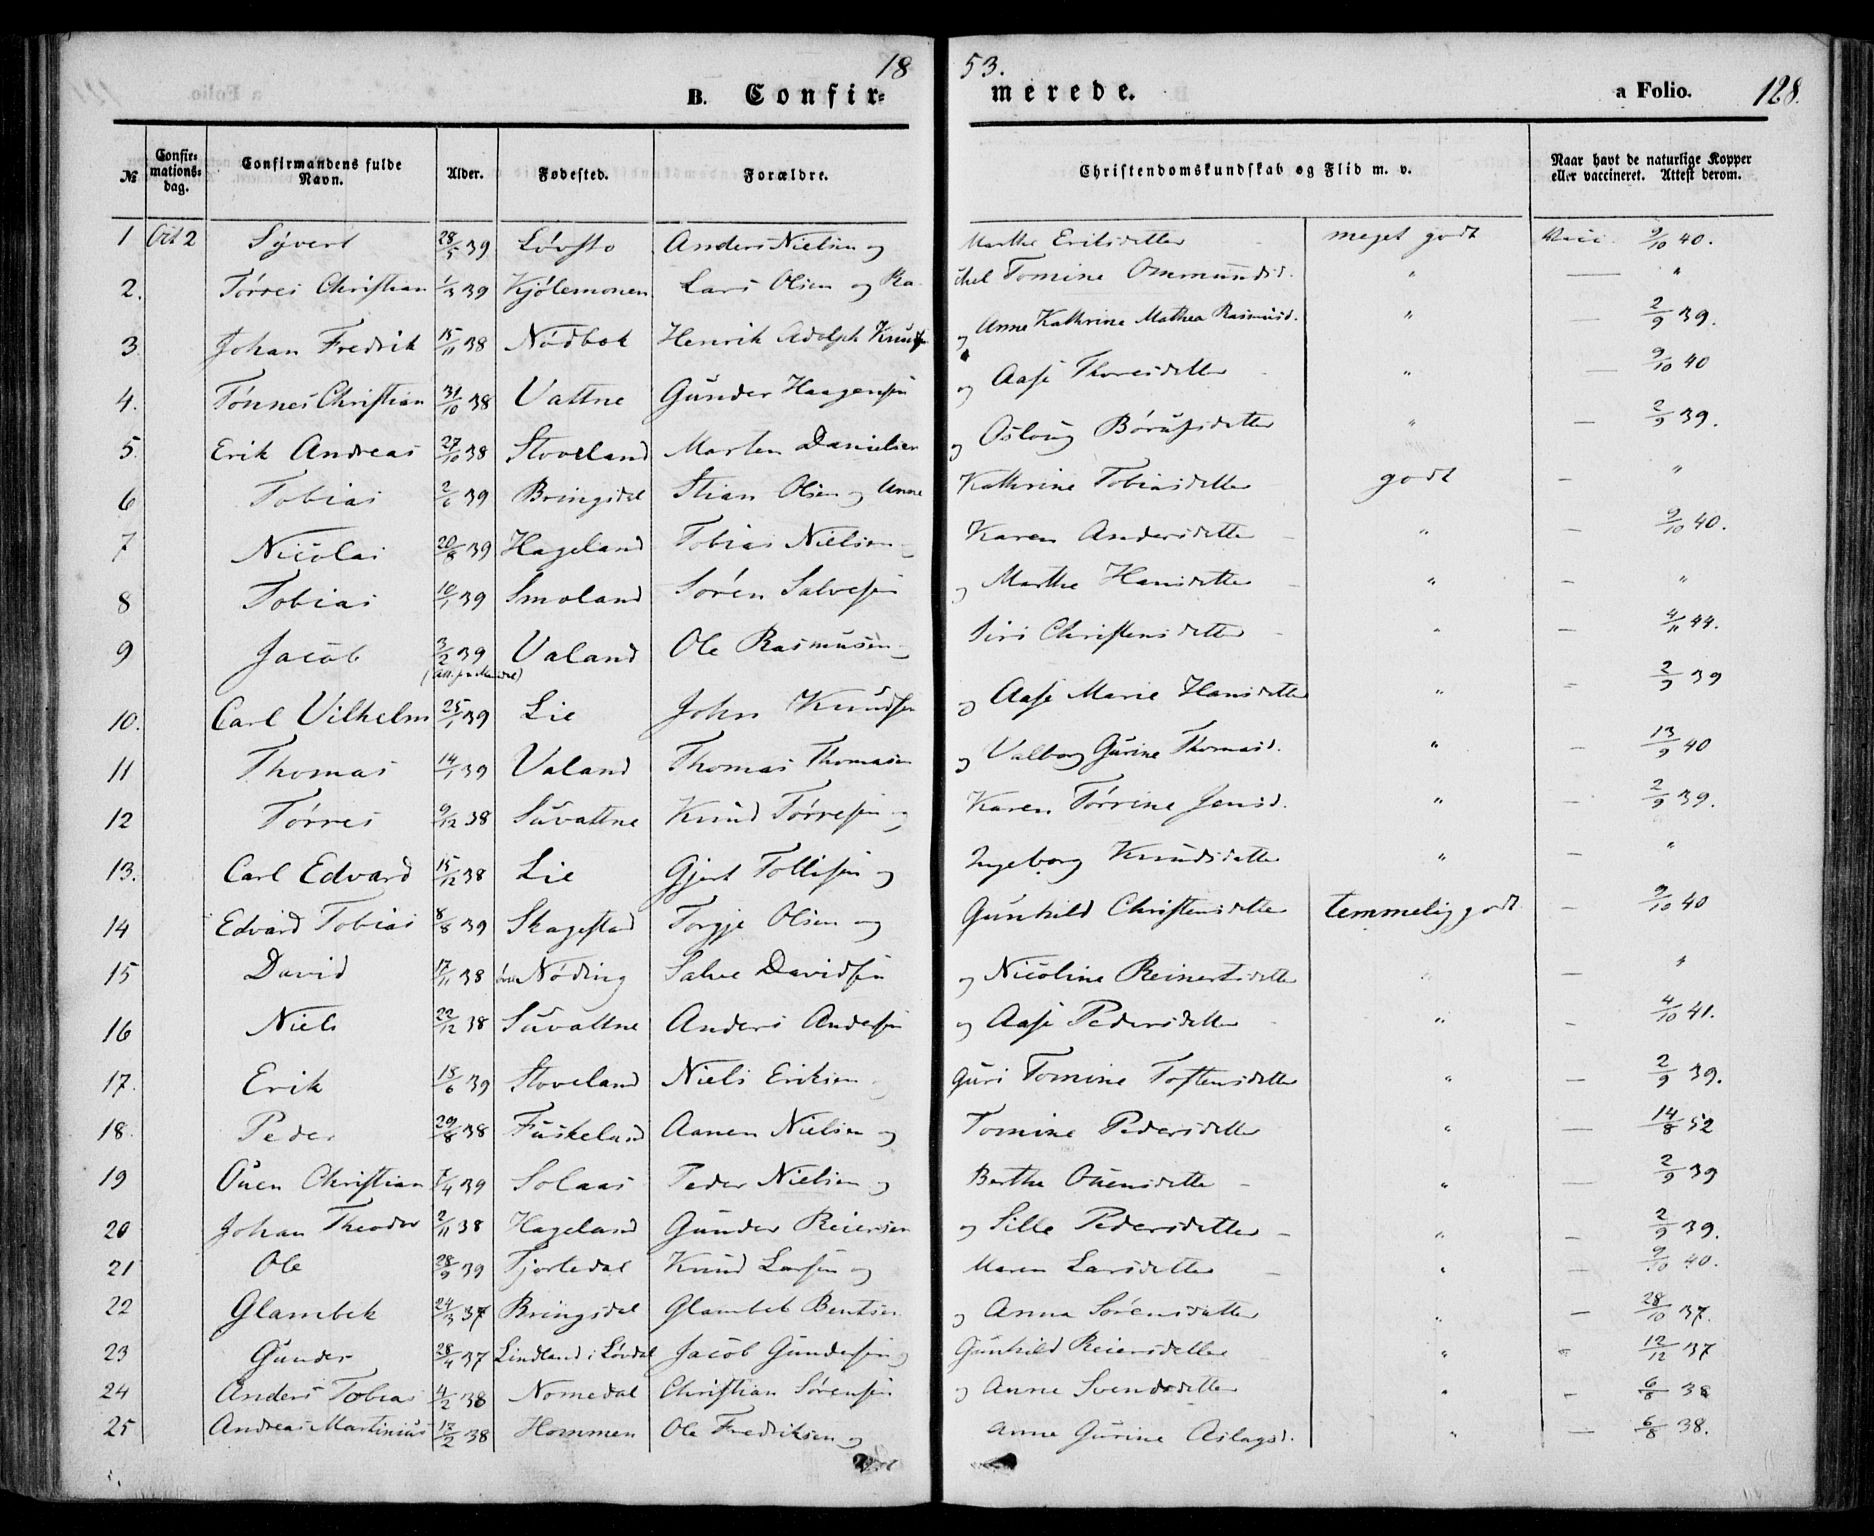 18 53.
B. Confir= merede. a Folio. 128.
№ Confir=mations=dag. Confirmandens fulde Navn. Alder. Fødested. Forældre. Christendomskundskab og Flid m. v. Naar havt de naturlige Kopper eller vaccineret. Attest derom.
1 Oct 2 Syvert 28/5 39 Løvsto Anders Nielsen og Marthe Eriksdatter meget godt Vacc. 9/10 40.
2. Tørres Christian 1/3 39 Kjölemonen Lars Olsen og Ra- chel Tomine Ommundsd. " — "
3. Johan Fredrik 15/11 38 Nødbek Henrik Adolph Knuds og Anne Kathrine Mathea Rasmusd. " — 2/9 39.
4. Tønnes Christian 31/10 38 Vattne Gunder Haagensen og Aase Thoresdatter " 9/10 40
5. Erik Andreas 27/10 38 Stoveland Morten Danielsen og Osloug Börufsdatter " — 2/9 39.
6 Tobias 2/6 39 Bringsdal Stian Olsen og Anne Kathrine Tobiasdatter godt — "
7 Nicolai 20/8 39 Hageland Tobias Nielsen og Karen Andersdatter " — 9/10 40.
8 Tobias 10/1 39 Smoland Sören Salvesen og Marthe Hansdatter " — "
9 Jacob 3/2 39 Valand Ole Rasmusen og Siri Christensdatter " — 4/11 44.
10. Carl Vilhelm 25/1 39 Lie John Knudsen og Aase Marie Hansdatter " — 2/9 39
11 Thomas 14/1 39 Valand Thomas Thomasen og Valborg Gurine Thomasd. " — 13/9 40
12 Tørres 9/12 38 Suvattne Knud Tørresen og Karen Tørrine Jensd. " — 2/9 39.
13. Carl Edvard 15/12 38 Lie Gjert Tollisen og Ingeborg Knudsdatter " — "
14 Edvard Tobias 8/8 39 Skagestad Torgje Olsen og Gunhild Christensdatter temmelig godt — 9/10 40
15 David 17/11 38 Nøding Salve Davidsen og Nicoline Reinertsdatter " — "
16 Niels 22/12 38 Suvattne Anders Andersen og Aase Pedersdatter " — 4/10 41.
17. Erik 18/6 39 Stoveland Niels Eriksen Guri Tomine Tostensdatter " — 2/9 39.
18. Peder 29/8 38 Fuskeland Aanen Nielsen og Tomine Pedersdatter " — 14/8 52
19 Ouen Christian 7/4 39 Solaas Peder Nielsen og Berthe Ouensdatter " — 2/9 39
20 Johan Theodor 2/11 38 Hageland Gunder Reiersen og Sille Pedersdatter " 2/9 39.
21 Ole 28/9 39 Tjortedal Knud Larsen og Maren Larsdatter " 9/10 40.
22 Glambek 24/3 37 Bringsdal Glambek Bentsen og Anna Sørensdatter " — 28/10 37.
23 Gunder 28/4 37 Lindland i Løvdal Jacob Gundersen og Gunhild Reiersdatter " " 12/12 37
24 Anders Tobias 4/2 38 Nomedal Christian Sørensen og Anne Svendsdatter " — 6/8 38
25 Andreas Martinius 12/2 38 Hommen Ole Fredriksen og Anne Gurine Aslagsd. " — 6/8 38.